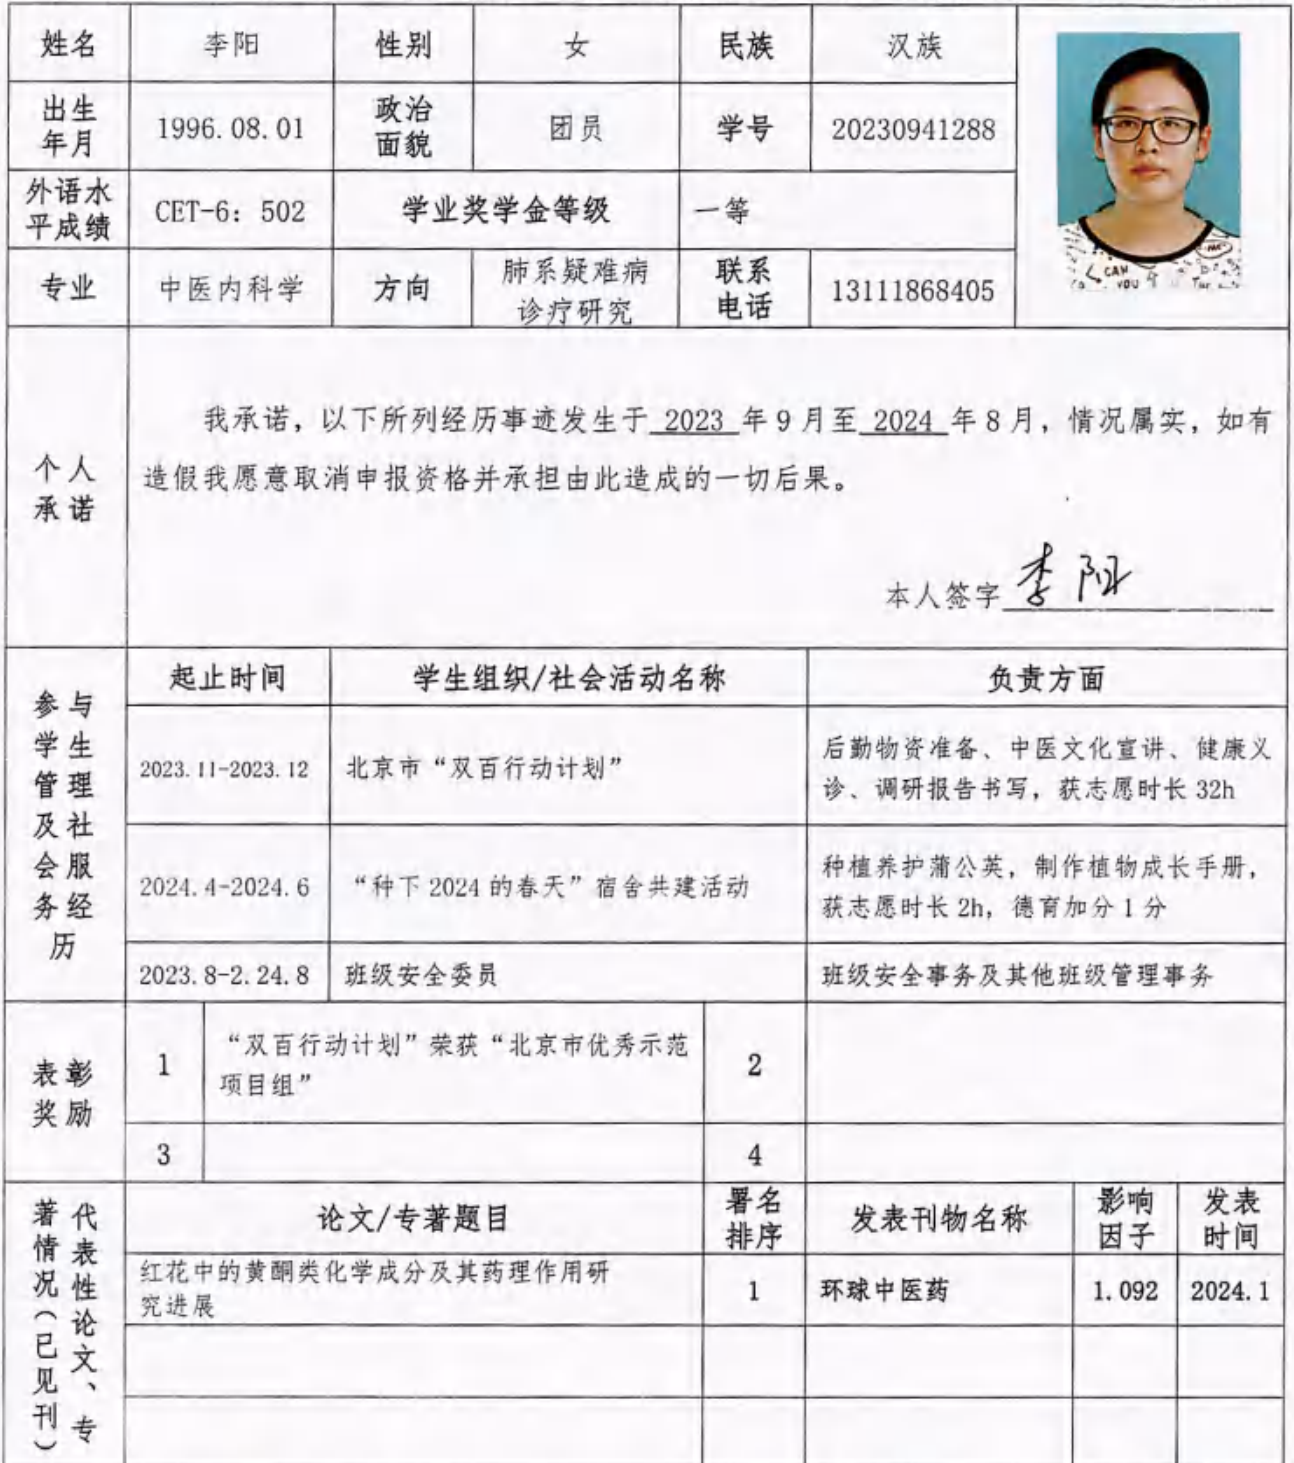 姓名 李阳 性别 女 民族 汉族
出生年月 1996.08.01 政治面貌 团员 学号 20230941288
外语水平成绩 CET-6：502 学业奖学金等级 一等
专业 中医内科学 方向 肺系疑难病诊疗研究 联系电话 13111868405
CAN
YOU
个人承诺
我承诺，以下所列经历事迹发生于 2023 年9月至 2024 年8月，情况属实，如有
造假我愿意取消申报资格并承担由此造成的一切后果。
本人签字 李阳
参与学生管理及社会服务经历
起止时间 学生组织/社会活动名称 负责方面
2023.11-2023.12 北京市“双百行动计划” 后勤物资准备、中医文化宣讲、健康义
诊、调研报告书写，获志愿时长 32h
2024.4-2024.6 “种下 2024 的春天”宿舍共建活动 种植养护蒲公英，制作植物成长手册，
获志愿时长 2h，德育加分 1 分
2023.8-2.24.8 班级安全委员 班级安全事务及其他班级管理事务
表彰奖励
1 “双百行动计划”荣获“北京市优秀示范 2
项目组”
3 4
代表性论文、专著情况（已见刊）
论文/专著题目 署名排序 发表刊物名称 影响因子 发表时间
红花中的黄酮类化学成分及其药理作用研
究进展 1 环球中医药 1.092 2024.1